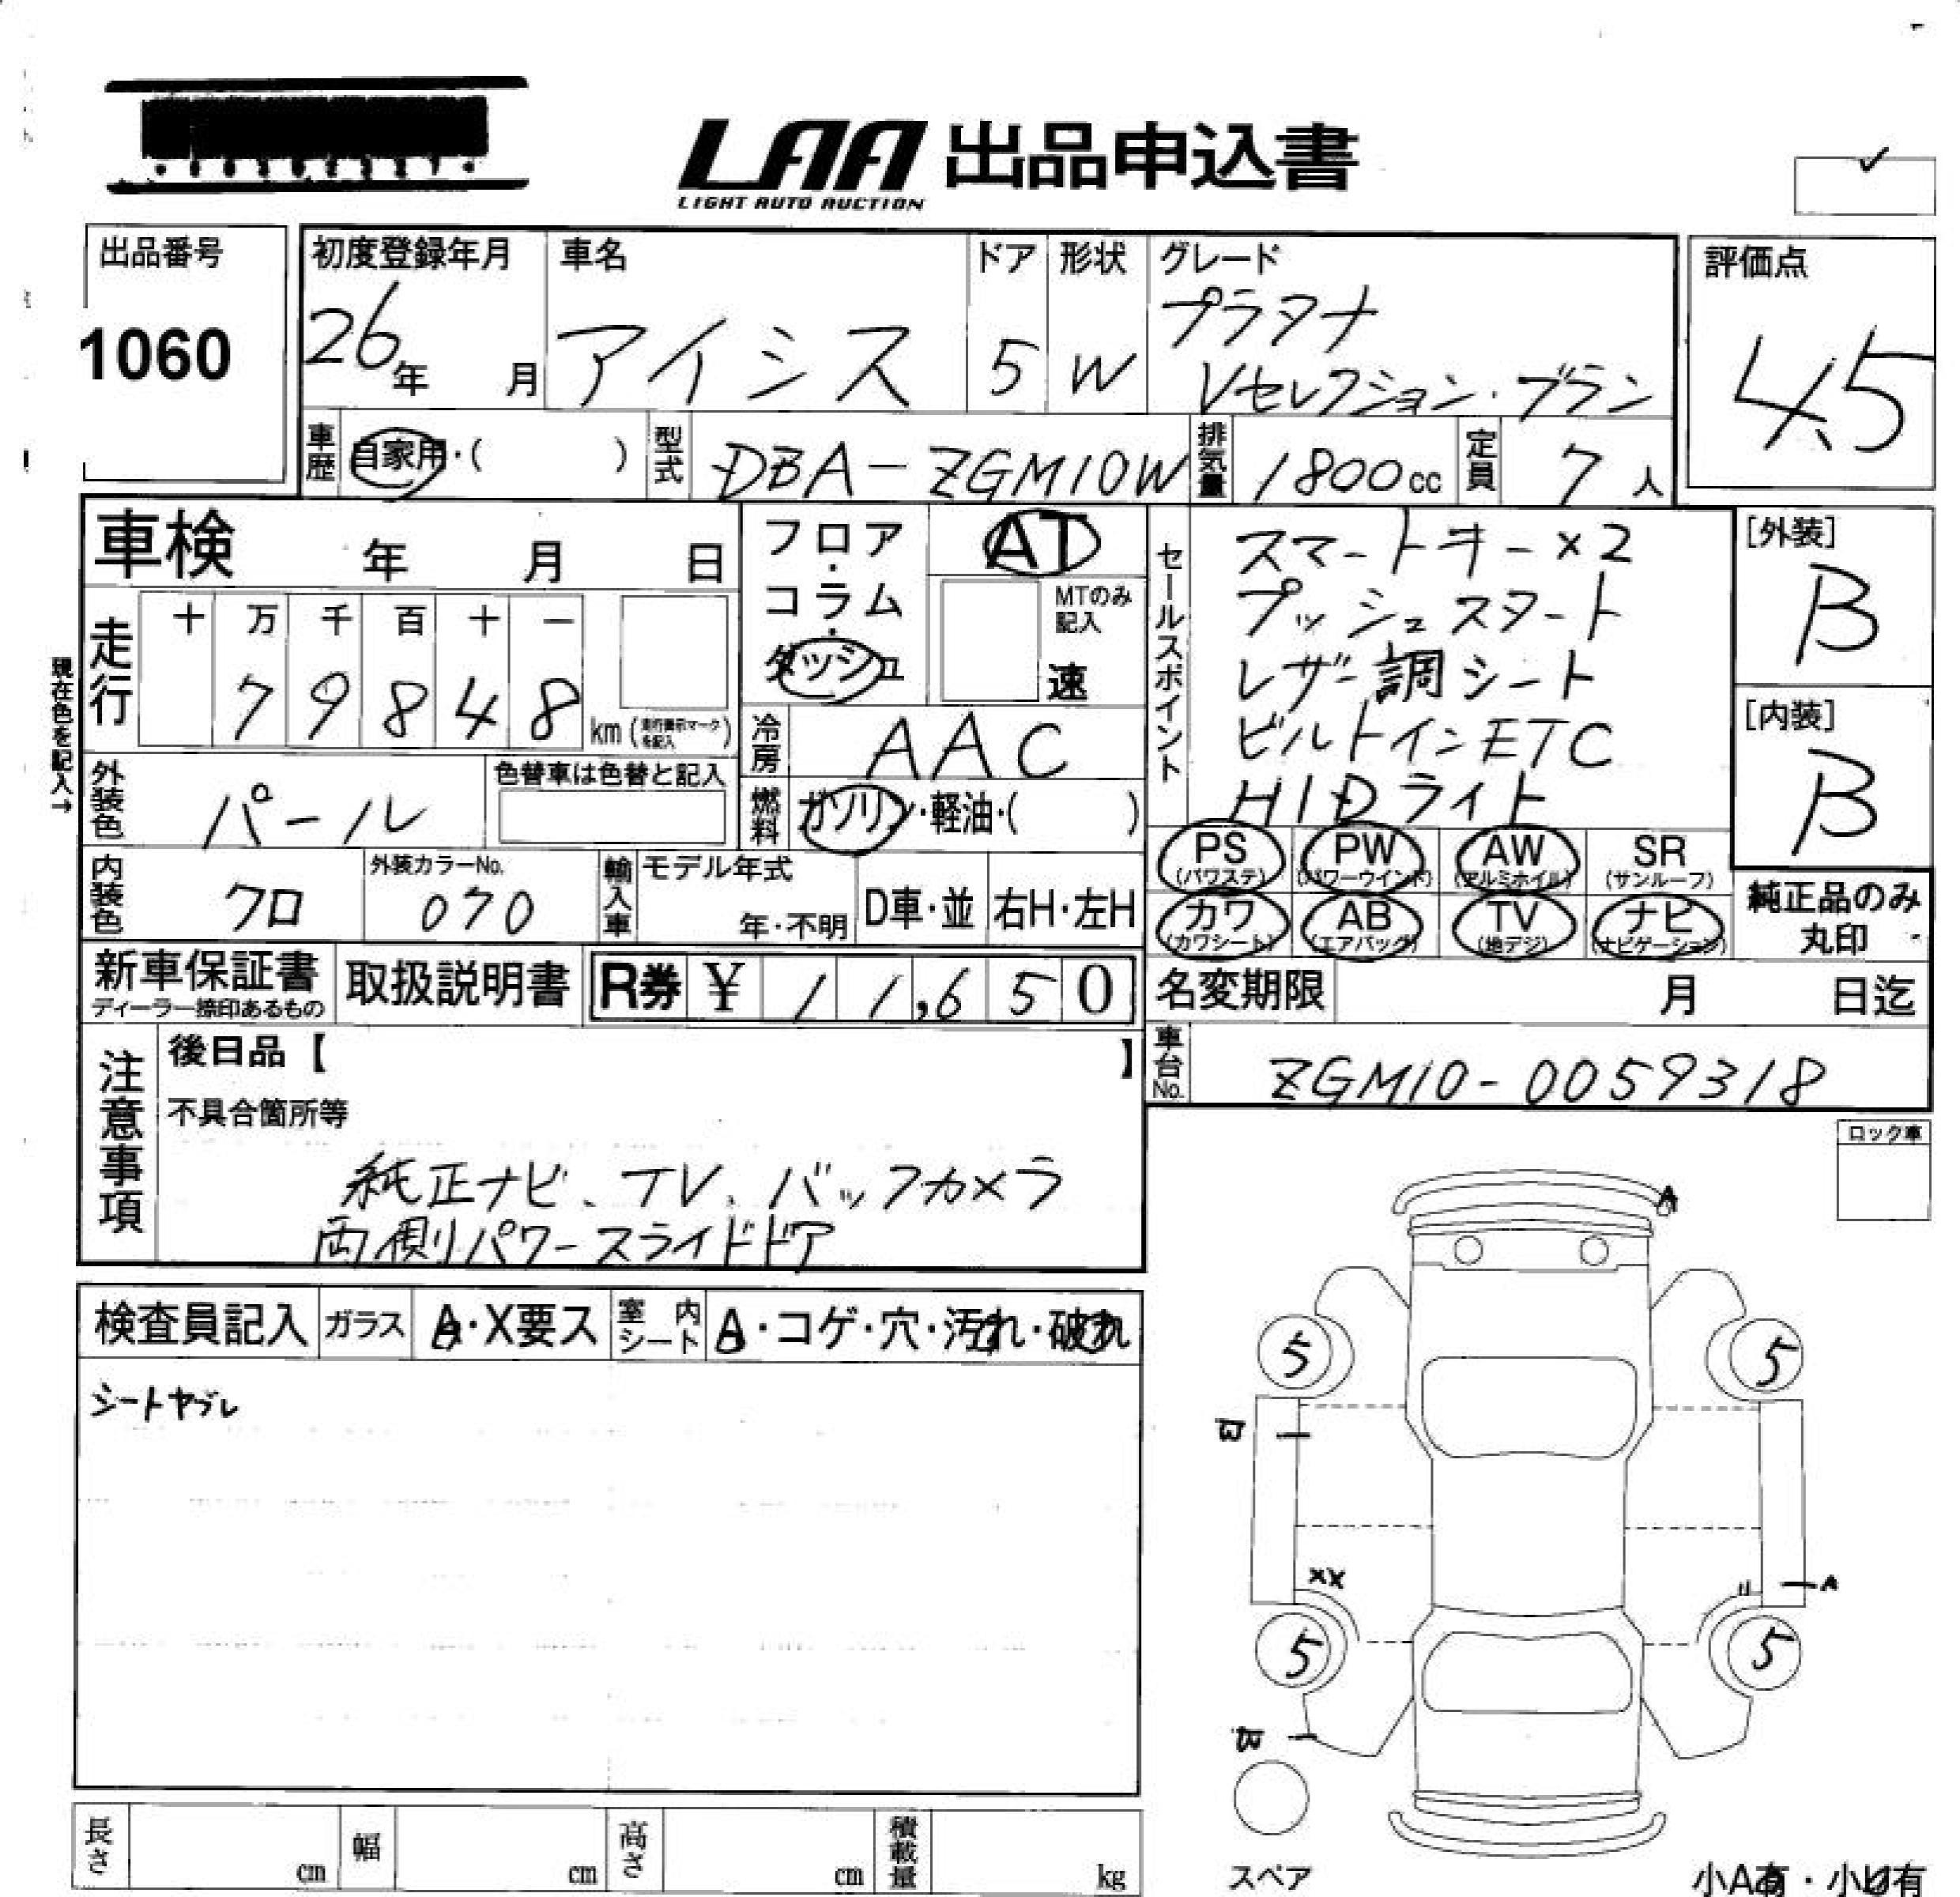 LAA 出品申込書
LIGHT AUTO AUCTION
出品番号
1060
初度登録年月
26年 月
車名
アイシス
ドア
5
形状
W
グレード
プラタナ
Vセレクション・ブラン
評価点
4.5
車歴 自家用・( )
型式 DBA-ZGM10W
排気量 1800cc
定員 7人
車検 年 月 日
フロア・コラム・ダッシュ
AT
MTのみ記入
速
現在色を記入→
走行
十 万 千 百 十 一
7 9 8 4 8 km
冷房 AAC
燃料 ガソリン・軽油・( )
外装色 パール
色替車は色替と記入
内装色 クロ
外装カラーNo.
070
輸入車
モデル年式
年・不明
D車・並
右H・左H
セールスポイント
スマートキー×2
プッシュスタート
レザー調シート
ビルトインETC
HIDライト
[外装]
B
[内装]
B
PS (パワステ)
PW (パワーウインド)
AW (アルミホイル)
SR (サンルーフ)
カワ (カワシート)
AB (エアバッグ)
TV (地デジ)
ナビ (ナビゲーション)
純正品のみ
丸印
新車保証書
ディーラー捺印あるもの
取扱説明書
R券 ¥ 11,650
名変期限 月 日迄
車台No. ZGM10-0059318
注意事項
後日品【 】
不具合箇所等
純正ナビ、TV、バックカメラ
両側パワースライドドア
ロック車
検査員記入
ガラス
A・X要ス
室内シート
A・コゲ・穴・汚れ・破れ
シートヤブレ
A
5
5
B
XX
A
5
5
スペア
小A有・小U有
長さ cm
幅 cm
高さ cm
積載量 kg